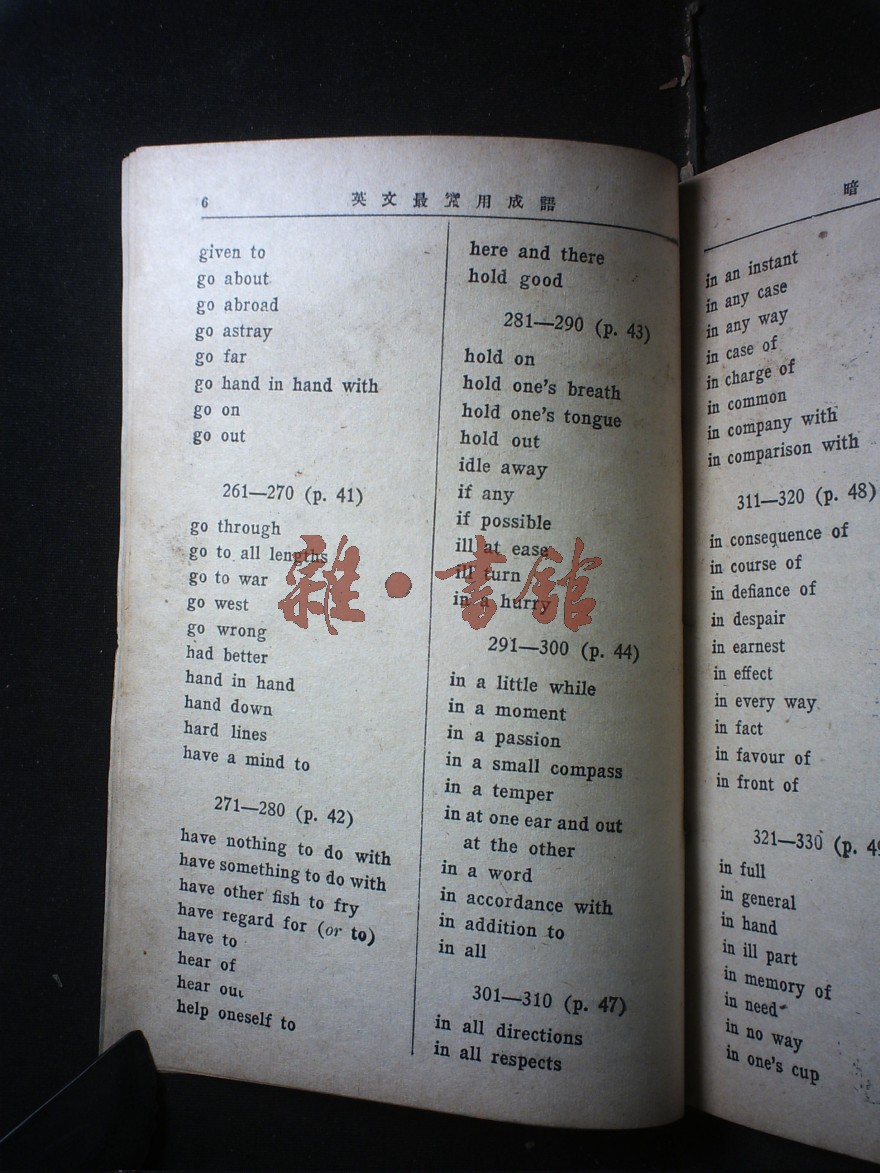 6
英文最常用成語
given to
go about
go abroad
go astray
go far
go hand in hand with
go on
go out
261—270 (p. 41)
go through
go to all lengths
go to war
go west
go wrong
had better
hand in hand
hand down
hard lines
have a mind to
271—280 (p. 42)
have nothing to do with
have something to do with
have other fish to fry
have regard for (or to)
have to
hear of
hear out
help oneself to
here and there
hold good
281—290 (p. 43)
hold on
hold one's breath
hold one's tongue
hold out
idle away
if any
if possible
ill at ease
ill turn
in a hurry
291—300 (p. 44)
in a little while
in a moment
in a passion
in a small compass
in a temper
in at one ear and out
at the other
in a word
in accordance with
in addition to
in all
301—310 (p. 47)
in all directions
in all respects
雜·書館
暗
in an instant
in any case
in any way
in case of
in charge of
in common
in company with
in comparison with
311—320 (p. 48)
in consequence of
in course of
in defiance of
in despair
in earnest
in effect
in every way
in fact
in favour of
in front of
321—330 (p. 49
in full
in general
in hand
in ill part
in memory of
in need
in no way
in one's cup